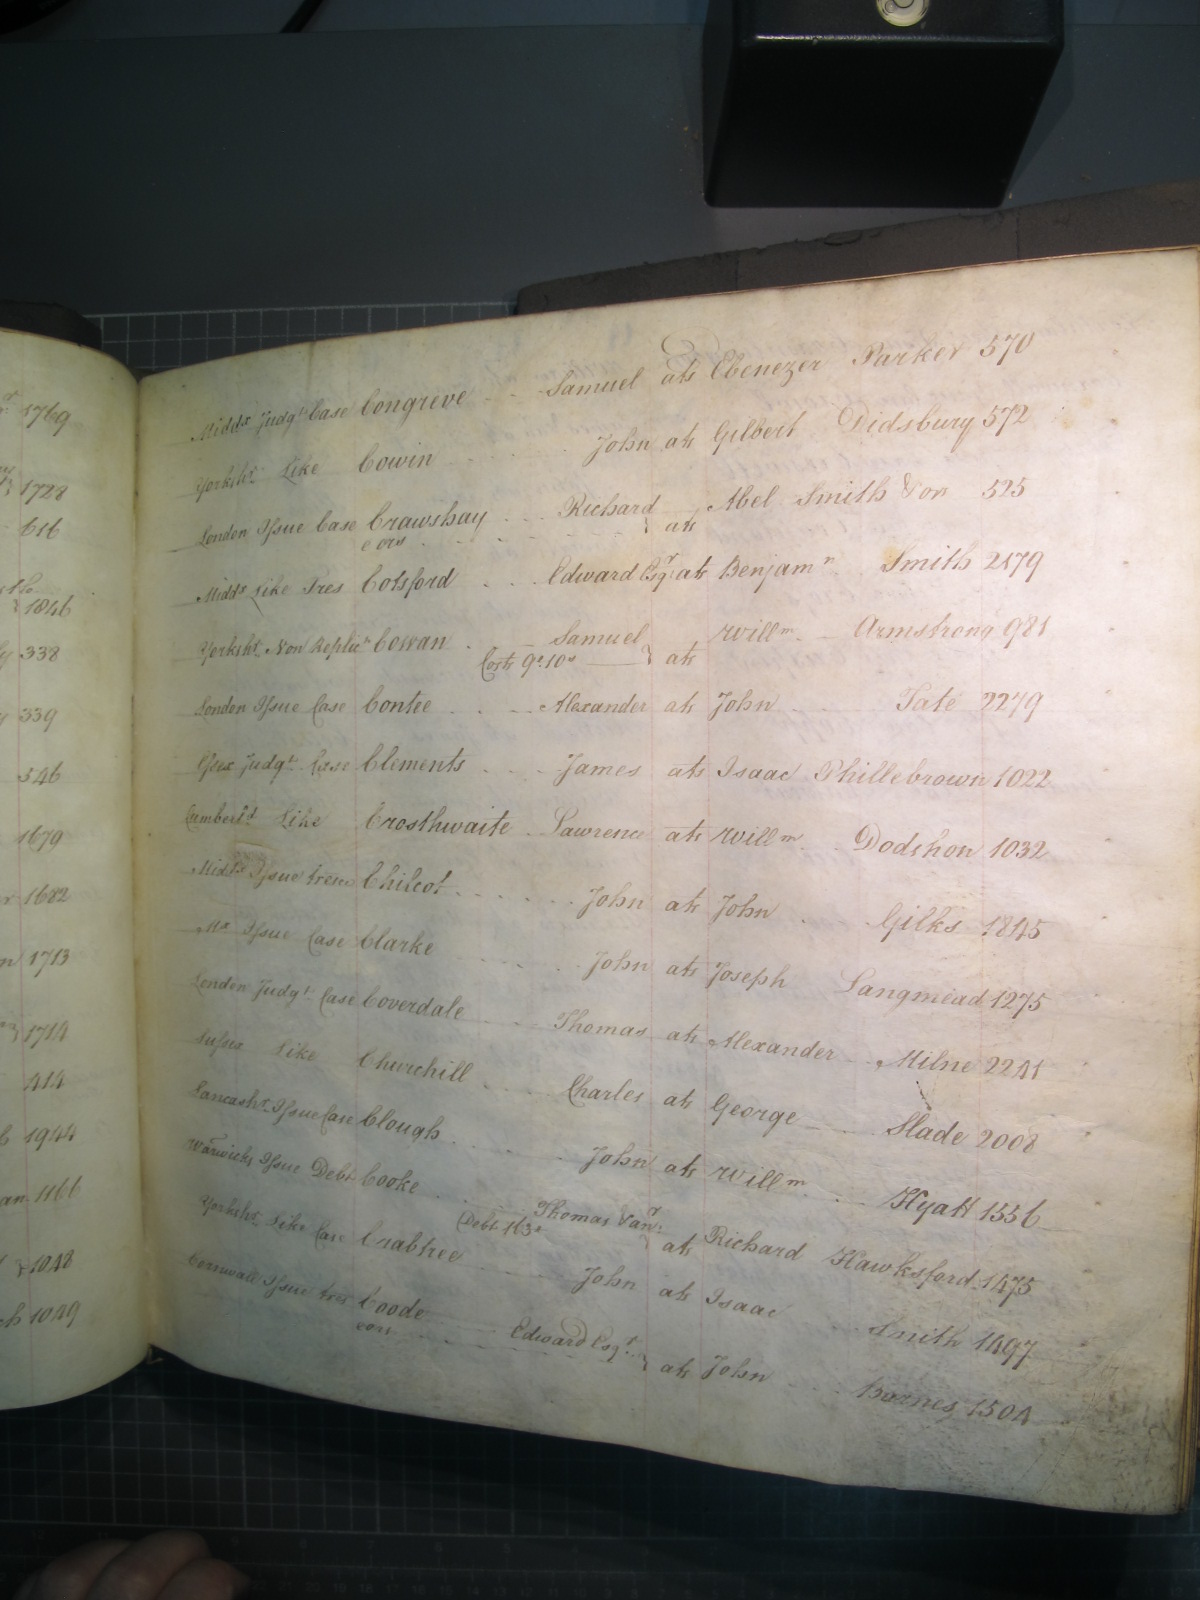 r 1769
1728
616
1846
338
339
546
1679
1682
1713
1714
414
1944
1166
1048
1049
Middx Judgt Case Congreve Samuel ats Ebenezer Parker 570
Yorkshr Like Cowin John ats Gilbert Didsbury 572
London Issue Case Crawshay Richard Abel Smith & or 525
& ors } ats
Middx Like Tres Cotsford Edward Esqr ats Benjamn Smith 2179
Yorkshr Non Replicn Cowan Samuel Willm Armstrong 981
Costs 9s. 10d } ats
London Issue Case Contee Alexander ats John Tate 2279
Essex Judgt Case Clements James ats Isaac Phillebrown 1022
Cumberld Like Crosthwaite Lawrence ats Willm Dodshon 1032
Middx Issue tresc Chilcot John ats John Gilks 1845
Mx Issue Case Clarke John ats Joseph Langmead 1275
London Judgt Case Coverdale Thomas ats Alexander Milne 2241
Sussex Like Churchill Charles ats George Slade 2008
Lancashr Issue Case Clough John ats Willm Hyatt 1556
Warwicks Issue Debt Cooke Thomas & anr
Debt 163s } ats Richard Hawksford 1475
Yorkshr Like Case Crabtree John ats Isaac Smith 1497
Cornwall Issue tres Coode Edward Esqr
& ors } ats John Barnes 1504